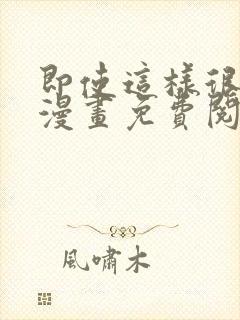 即使這樣很
漫畫免費閱
風嘯木